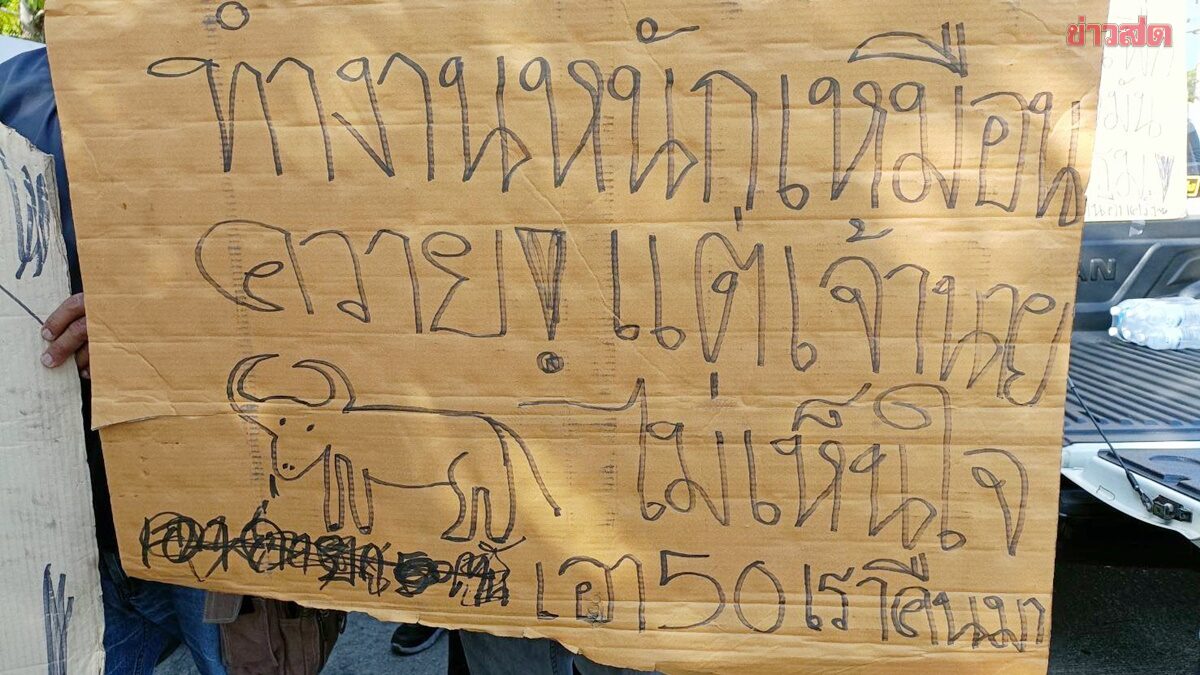 ข่าวสด
ทำงานหนักเหมือน
ควาย! แต่เจ้านาย
ไม่เห็นใจ
เอา 50 เราคืนมา